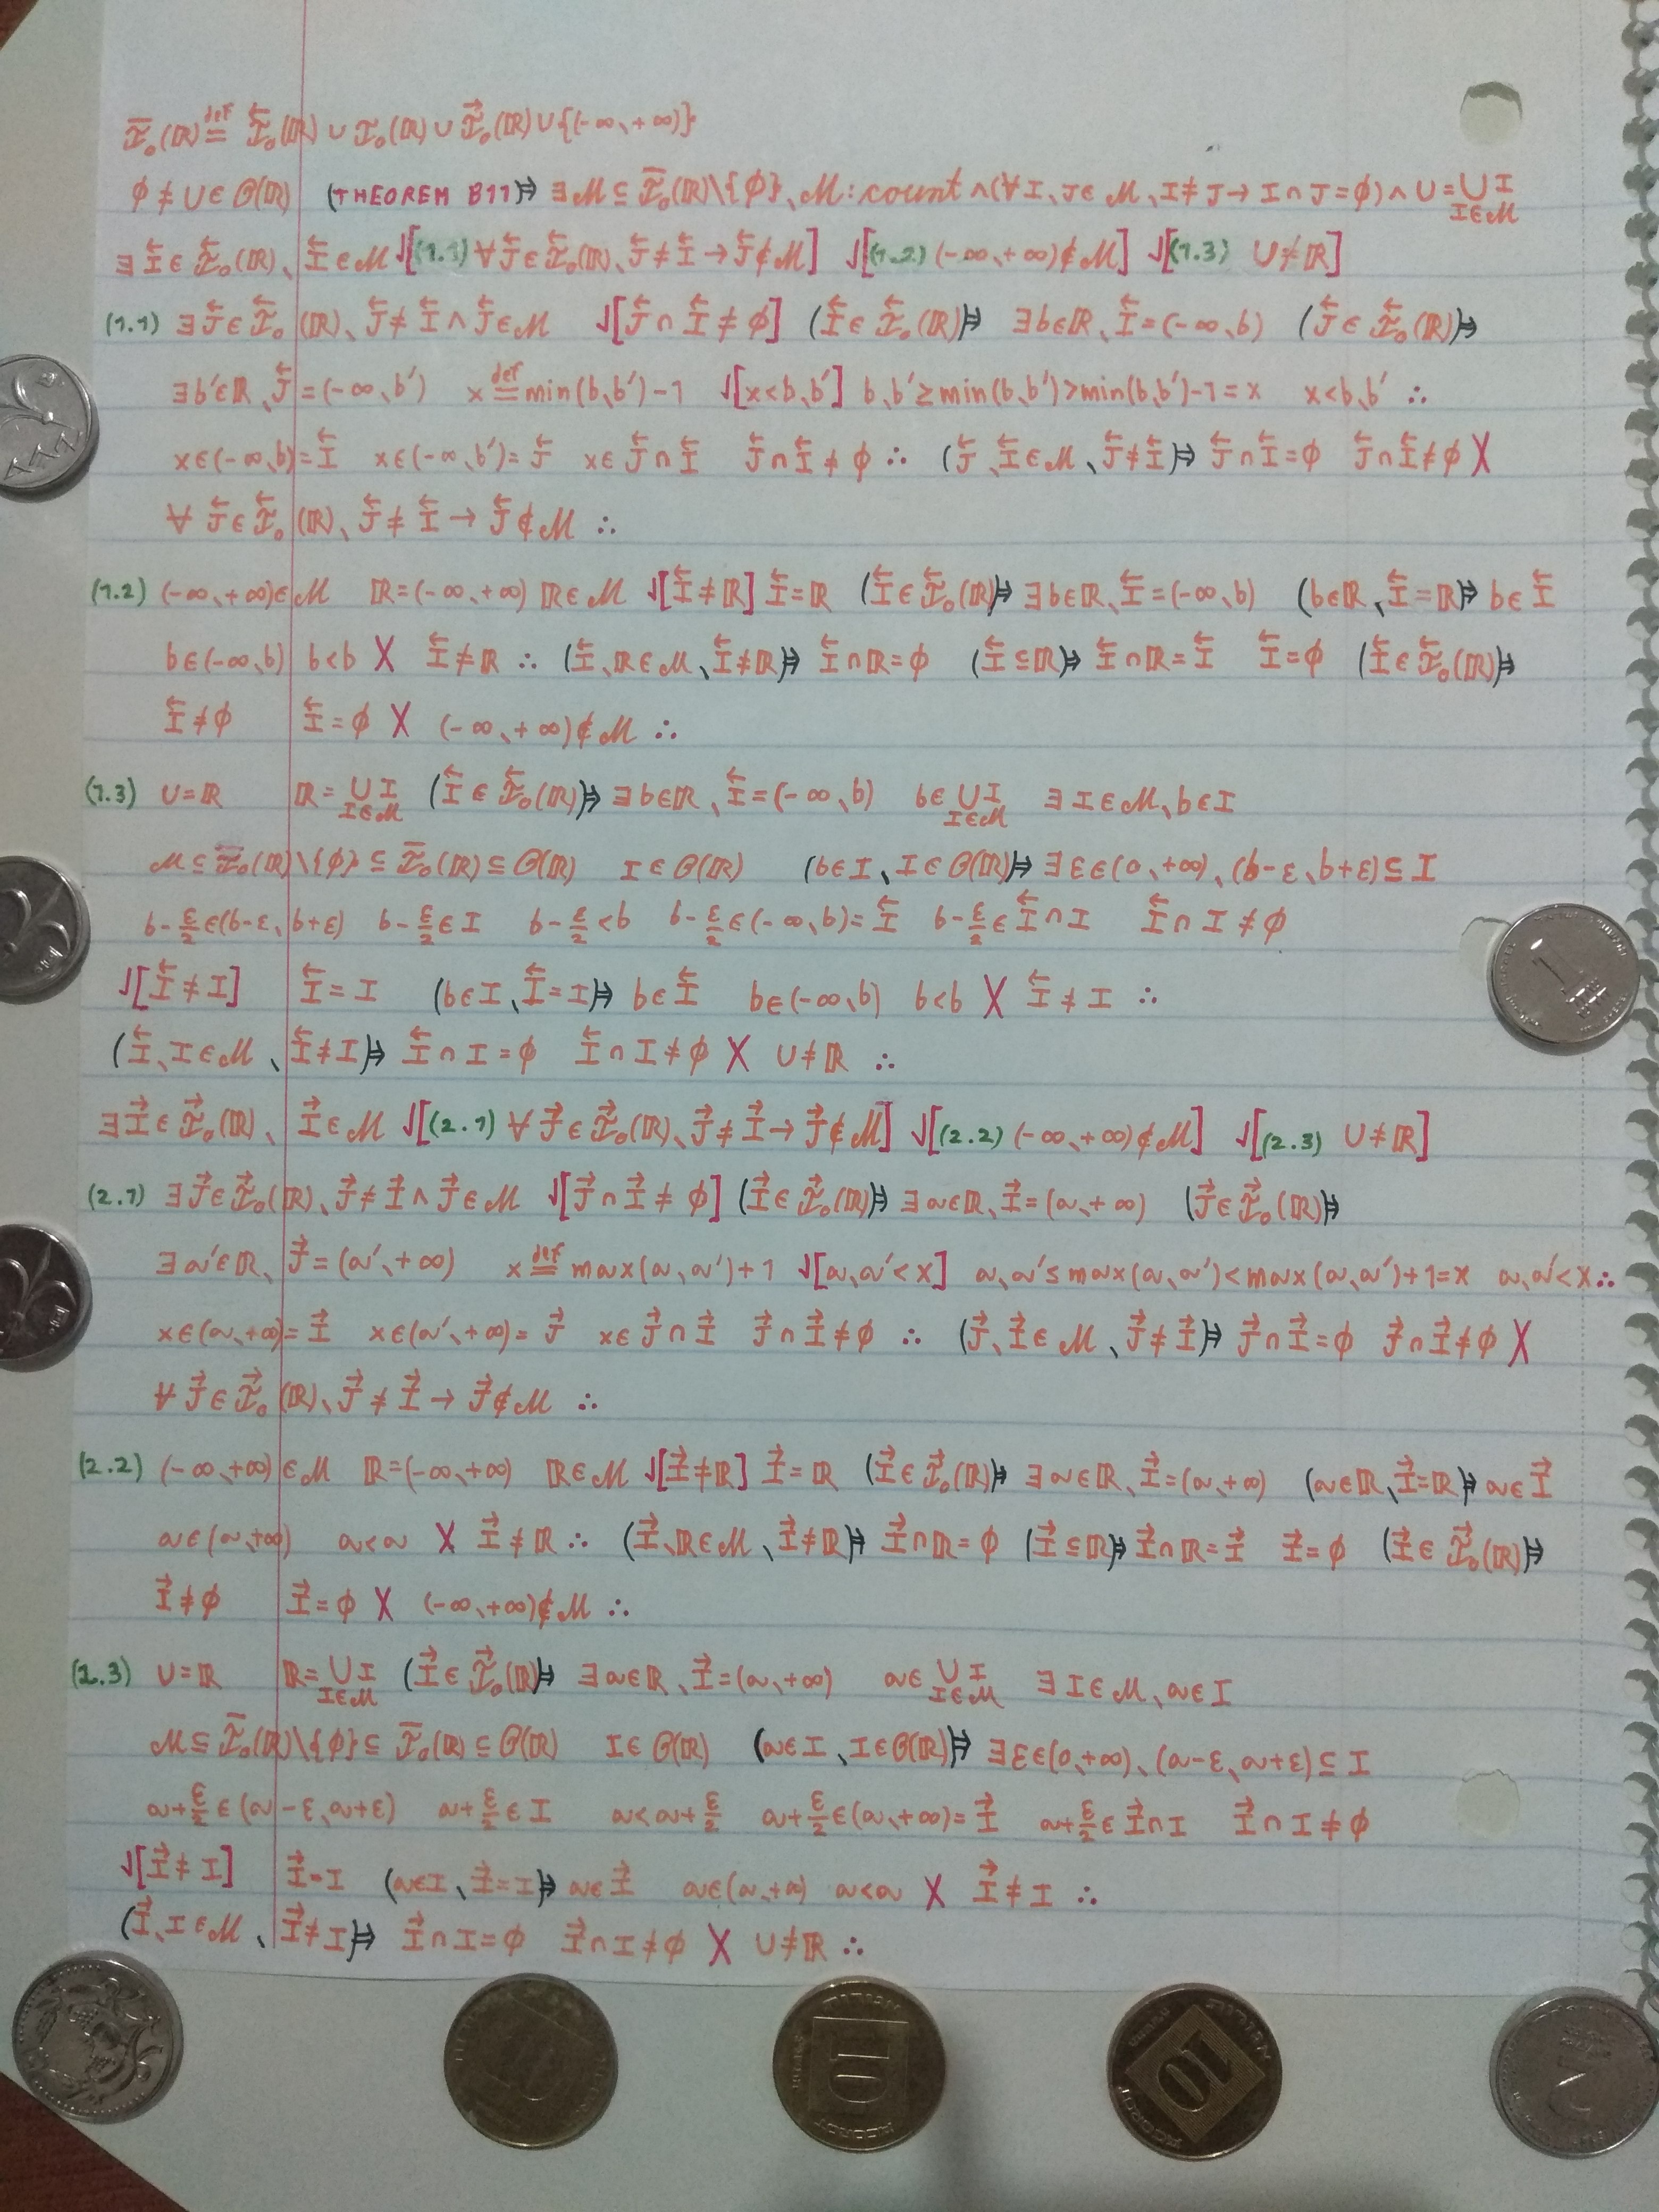 Ī₀(ℝ) ≝ I⃖₀(ℝ) ∪ I₀(ℝ) ∪ I⃗₀(ℝ) ∪ {(-∞、+∞)}
∅ ≠ U ∈ 𝒪(ℝ) (THEOREM B11)⇒ ∃ℳ ⊆ Ī₀(ℝ)\{∅}、ℳ:count ∧ (∀I、J∈ℳ、I≠J → I∩J=∅) ∧ U = ∪I I∈ℳ
∃I⃖ ∈ I⃖₀(ℝ)、I⃖∈ℳ √[(1.1) ∀J⃖∈I⃖₀(ℝ)、J⃖≠I⃖ → J⃖∉ℳ] √[(1.2) (-∞、+∞)∉ℳ] √[(1.3) U≠ℝ]
(1.1) ∃J⃖∈I⃖₀(ℝ)、J⃖≠I⃖ ∧ J⃖∈ℳ √[J⃖∩I⃖ ≠ ∅] (I⃖∈I⃖₀(ℝ))⇒ ∃b∈ℝ、I⃖=(-∞、b) (J⃖∈I⃖₀(ℝ))⇒
∃b'∈ℝ、J⃖=(-∞、b') x ≝ min(b、b')-1 √[x<b、b'] b、b'≥min(b、b')>min(b、b')-1=x x<b、b' ∴
x∈(-∞、b)=I⃖ x∈(-∞、b')=J⃖ x∈J⃖∩I⃖ J⃖∩I⃖≠∅ ∴ (J⃖、I⃖∈ℳ、J⃖≠I⃖)⇒ J⃖∩I⃖=∅ J⃖∩I⃖≠∅ X
∀J⃖∈I⃖₀(ℝ)、J⃖≠I⃖ → J⃖∉ℳ ∴
(1.2) (-∞、+∞)∈ℳ ℝ=(-∞、+∞) ℝ∈ℳ √[I⃖≠ℝ] I⃖=ℝ (I⃖∈I⃖₀(ℝ))⇒ ∃b∈ℝ、I⃖=(-∞、b) (b∈ℝ、I⃖=ℝ)⇒ b∈I⃖
b∈(-∞、b) b<b X I⃖≠ℝ ∴ (I⃖、ℝ∈ℳ、I⃖≠ℝ)⇒ I⃖∩ℝ=∅ (I⃖⊆ℝ)⇒ I⃖∩ℝ=I⃖ I⃖=∅ (I⃖∈I⃖₀(ℝ))⇒
I⃖≠∅ I⃖=∅ X (-∞、+∞)∉ℳ ∴
(1.3) U=ℝ ℝ=∪I I∈ℳ (I⃖∈I⃖₀(ℝ))⇒ ∃b∈ℝ、I⃖=(-∞、b) b∈∪I I∈ℳ ∃I∈ℳ、b∈I
ℳ⊆Ī₀(ℝ)\{∅}⊆Ī₀(ℝ)⊆𝒪(ℝ) I∈𝒪(ℝ) (b∈I、I∈𝒪(ℝ))⇒ ∃ε∈(0、+∞)、(b-ε、b+ε)⊆I
b-ε/2∈(b-ε、b+ε) b-ε/2∈I b-ε/2<b b-ε/2∈(-∞、b)=I⃖ b-ε/2∈I⃖∩I I⃖∩I≠∅
√[I⃖≠I] I⃖=I (b∈I、I⃖=I)⇒ b∈I⃖ b∈(-∞、b) b<b X I⃖≠I ∴
(I⃖、I∈ℳ、I⃖≠I)⇒ I⃖∩I=∅ I⃖∩I≠∅ X U≠ℝ ∴
∃I⃗∈I⃗₀(ℝ)、I⃗∈ℳ √[(2.1) ∀J⃗∈I⃗₀(ℝ)、J⃗≠I⃗ → J⃗∉ℳ] √[(2.2) (-∞、+∞)∉ℳ] √[(2.3) U≠ℝ]
(2.1) ∃J⃗∈I⃗₀(ℝ)、J⃗≠I⃗ ∧ J⃗∈ℳ √[J⃗∩I⃗ ≠ ∅] (I⃗∈I⃗₀(ℝ))⇒ ∃a∈ℝ、I⃗=(a、+∞) (J⃗∈I⃗₀(ℝ))⇒
∃a'∈ℝ、J⃗=(a'、+∞) x ≝ max(a、a')+1 √[a、a'<x] a、a'≤max(a、a')<max(a、a')+1=x a、a'<x ∴
x∈(a、+∞)=I⃗ x∈(a'、+∞)=J⃗ x∈J⃗∩I⃗ J⃗∩I⃗≠∅ ∴ (J⃗、I⃗∈ℳ、J⃗≠I⃗)⇒ J⃗∩I⃗=∅ J⃗∩I⃗≠∅ X
∀J⃗∈I⃗₀(ℝ)、J⃗≠I⃗ → J⃗∉ℳ ∴
(2.2) (-∞、+∞)∈ℳ ℝ=(-∞、+∞) ℝ∈ℳ √[I⃗≠ℝ] I⃗=ℝ (I⃗∈I⃗₀(ℝ))⇒ ∃a∈ℝ、I⃗=(a、+∞) (a∈ℝ、I⃗=ℝ)⇒ a∈I⃗
a∈(a、+∞) a<a X I⃗≠ℝ ∴ (I⃗、ℝ∈ℳ、I⃗≠ℝ)⇒ I⃗∩ℝ=∅ (I⃗⊆ℝ)⇒ I⃗∩ℝ=I⃗ I⃗=∅ (I⃗∈I⃗₀(ℝ))⇒
I⃗≠∅ I⃗=∅ X (-∞、+∞)∉ℳ ∴
(2.3) U=ℝ ℝ=∪I I∈ℳ (I⃗∈I⃗₀(ℝ))⇒ ∃a∈ℝ、I⃗=(a、+∞) a∈∪I I∈ℳ ∃I∈ℳ、a∈I
ℳ⊆Ī₀(ℝ)\{∅}⊆Ī₀(ℝ)⊆𝒪(ℝ) I∈𝒪(ℝ) (a∈I、I∈𝒪(ℝ))⇒ ∃ε∈(0、+∞)、(a-ε、a+ε)⊆I
a+ε/2∈(a-ε、a+ε) a+ε/2∈I a<a+ε/2 a+ε/2∈(a、+∞)=I⃗ a+ε/2∈I⃗∩I I⃗∩I≠∅
√[I⃗≠I] I⃗=I (a∈I、I⃗=I)⇒ a∈I⃗ a∈(a、+∞) a<a X I⃗≠I ∴
(I⃗、I∈ℳ、I⃗≠I)⇒ I⃗∩I=∅ I⃗∩I≠∅ X U≠ℝ ∴
1
10
10